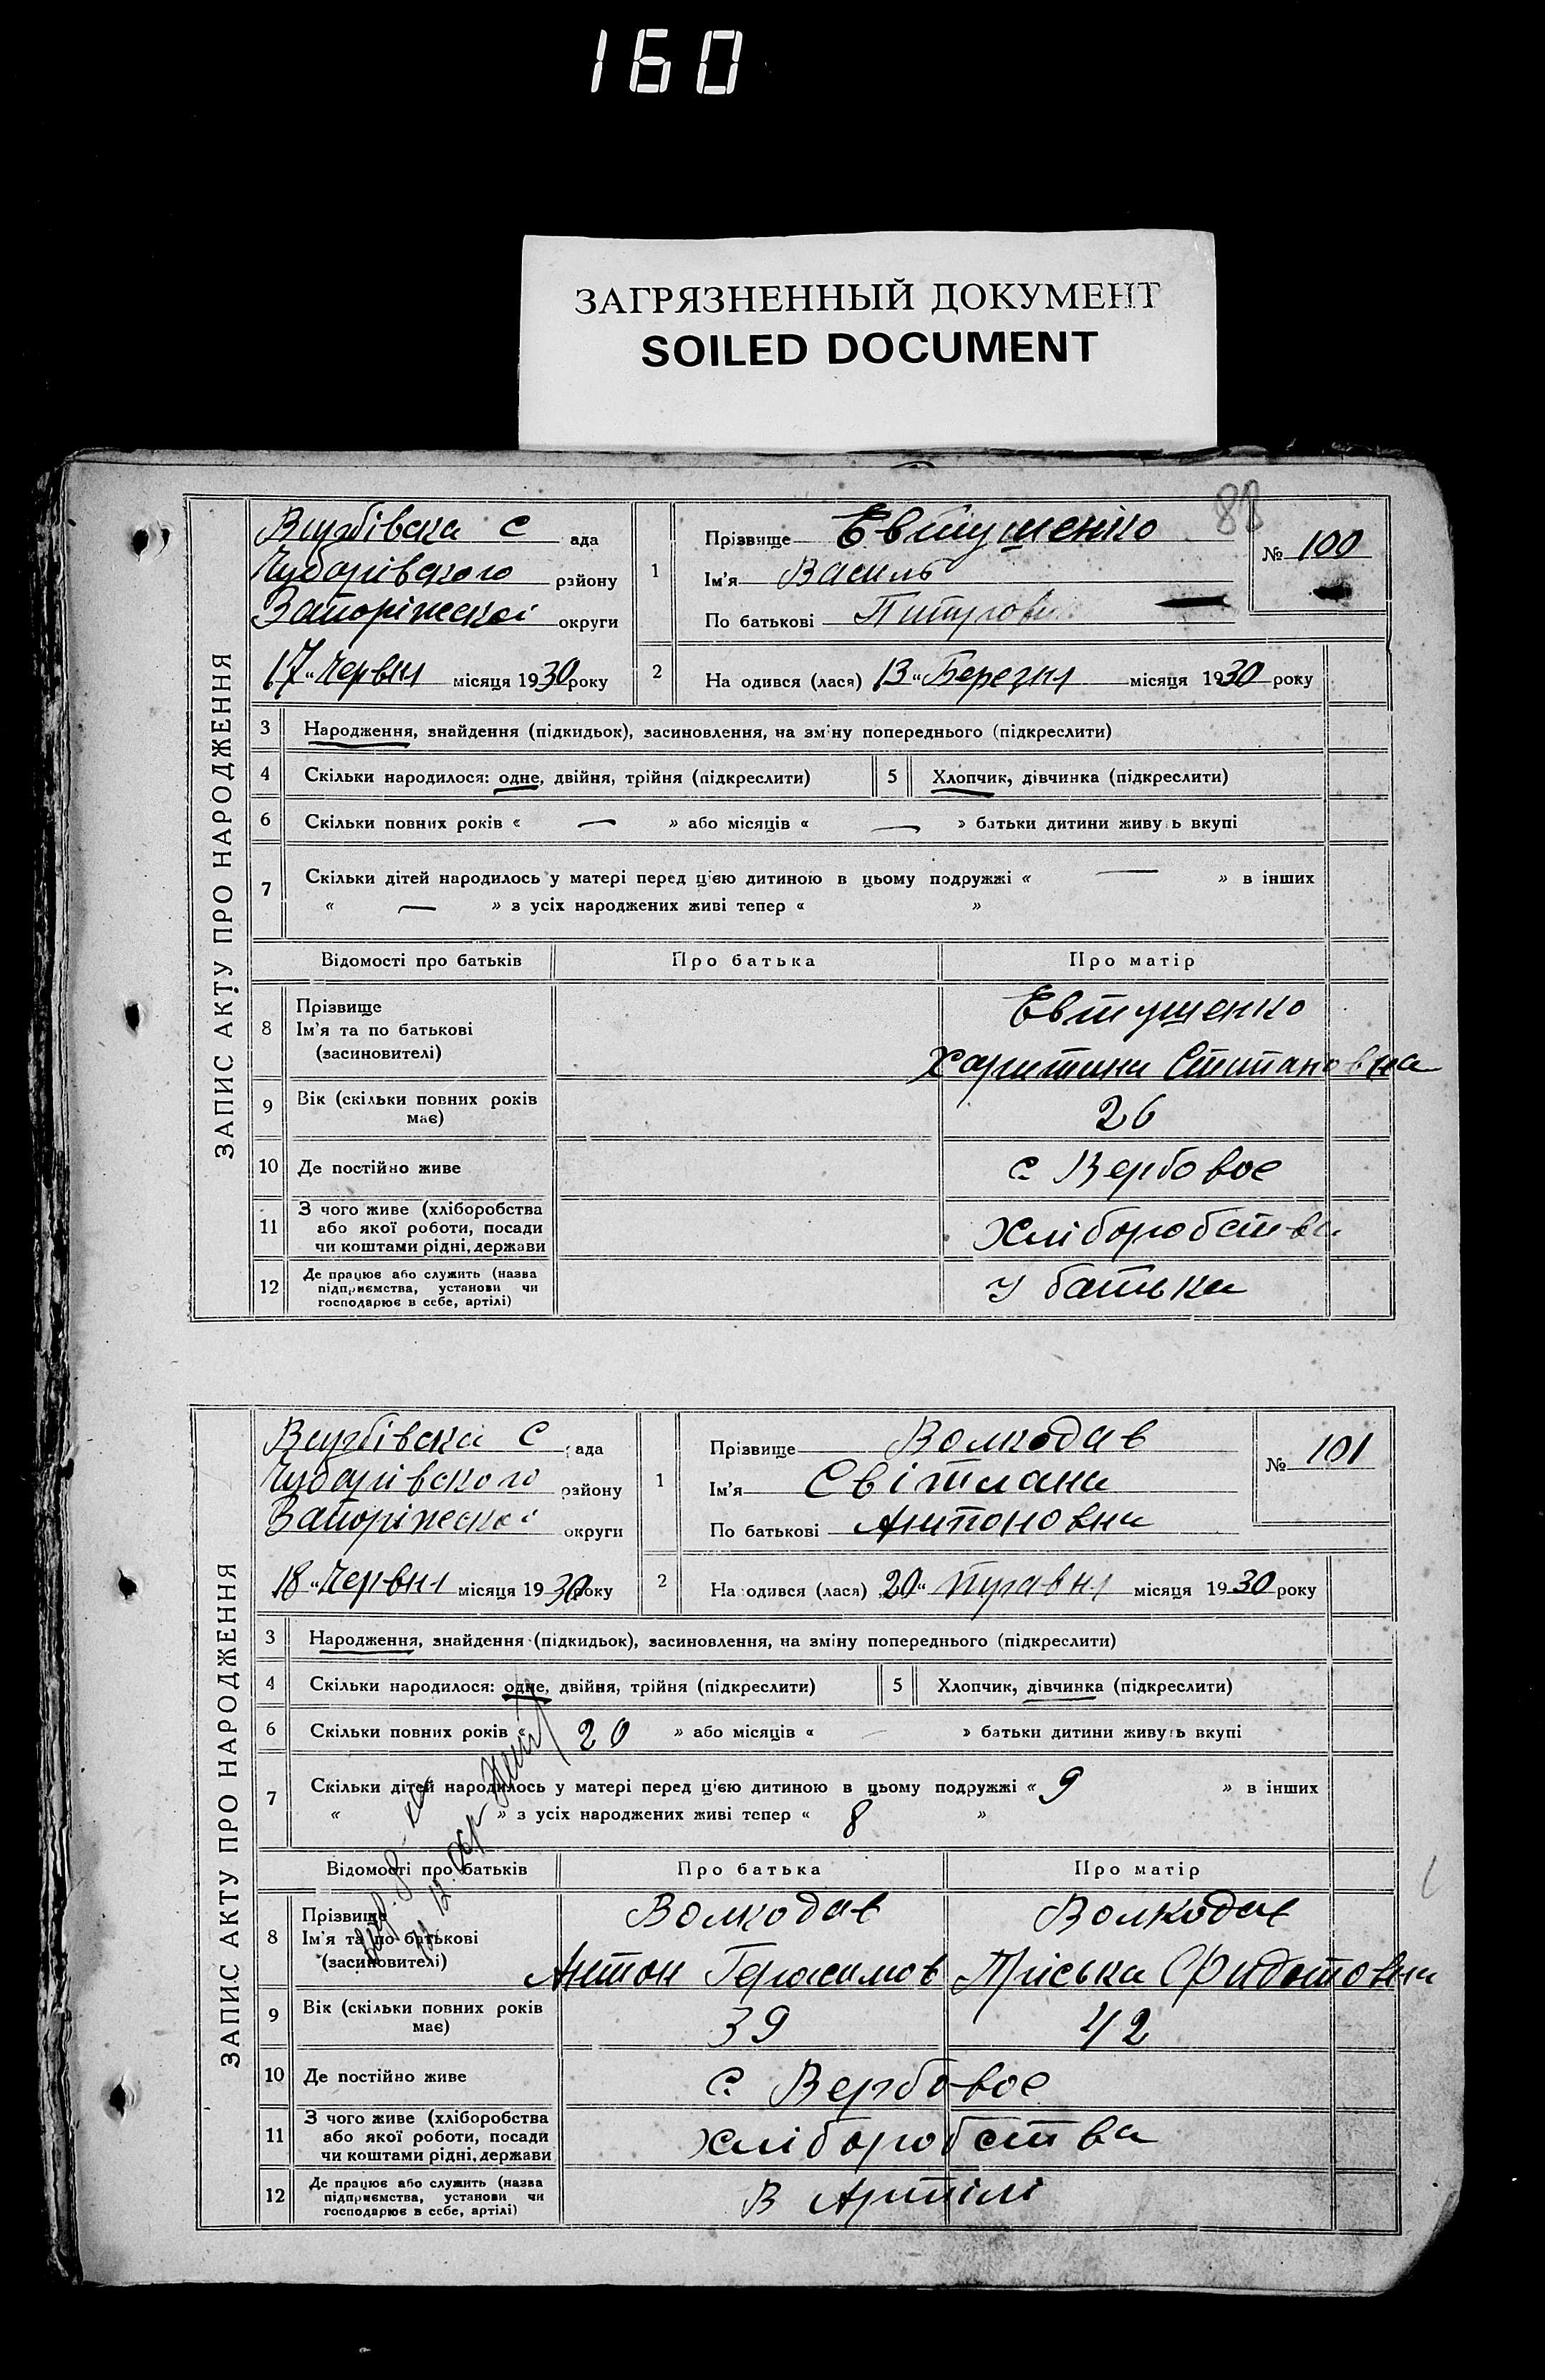 160
ЗАГРЯЗНЕННЫЙ ДОКУМЕНТ
SOILED DOCUMENT
88
ЗАПИС АКТУ ПРО НАРОДЖЕННЯ
Вербівска С ада
Чубарівского району
Запоріжскоі округи
17 " Червня місяця 1930 року
1 Прізвище Евтушенко
Ім'я Василь
По батькові
№ 100
2 На одився (лася) 13 " Березня місяця 1930 року
3 Народження, знайдення (підкидьок), засиновлення, на зміну попереднього (підкреслити)
4 Скільки народилося: одне, двійня, трійня (підкреслити) 5 Хлопчик, дівчинка (підкреслити)
6 Скільки повних років « — » або місяців « — » батьки дитини живуть вкупі
7 Скільки дітей народилось у матері перед цією дитиною в цьому подружжі « — » в інших
« — » з усіх народжених живі тепер « »
Відомості про батьків Про батька Про матір
8 Прізвище
Ім'я та по батькові
(засиновителі)
Евтушенко
Харитина Степановна
9 Вік (скільки повних років
має)
26
10 Де постійно живе
с Вербовое
11 З чого живе (хліборобства
або якої роботи, посади
чи коштами рідні, держави
Хліборобства
12 Де працює або служить (назва
підприємства, установи чи
господарює в себе, артілі)
У батька
ЗАПИС АКТУ ПРО НАРОДЖЕННЯ
Вербівска С ада
Чубарівского району
Запоріжскоі округи
18 " Червня місяця 1930 року
1 Прізвище Волкодав
Ім'я Світлана
По батькові Антоновна
№ 101
2 На одився (лася) 20 " травня місяця 1930 року
3 Народження, знайдення (підкидьок), засиновлення, на зміну попереднього (підкреслити)
4 Скільки народилося: одне, двійня, трійня (підкреслити) 5 Хлопчик, дівчинка (підкреслити)
6 Скільки повних років « 20 » або місяців « — » батьки дитини живуть вкупі
7 Скільки дітей народилось у матері перед цією дитиною в цьому подружжі « 9 » в інших
« » з усіх народжених живі тепер « 8 »
Відомості про батьків Про батька Про матір
8 Прізвище
Ім'я та по батькові
(засиновителі)
Волкодав Волкодав
Антон Герасимов
9 Вік (скільки повних років
має)
39 42
10 Де постійно живе
с. Вербовое
11 З чого живе (хліборобства
або якої роботи, посади
чи коштами рідні, держави
хліборобства
12 Де працює або служить (назва
підприємства, установи чи
господарює в себе, артілі)
В Артілі